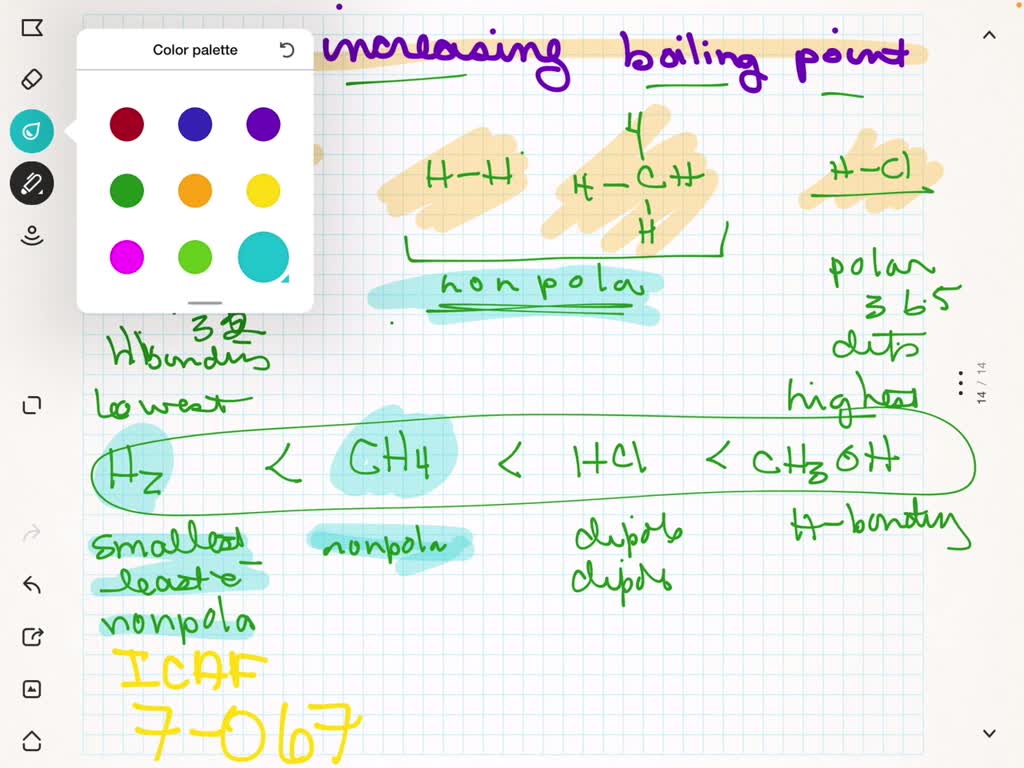 Color palette
increasing boiling point
H-H
H
H-CH
H
H-Cl
nonpola
polar
3 bs
H bonding
lowest
highest
14 / 14
H2 < CH4 < HCl < CH3OH
smallest
least e
nonpola
nonpola
dipole
dipole
H-bonding
ICAF
7-067